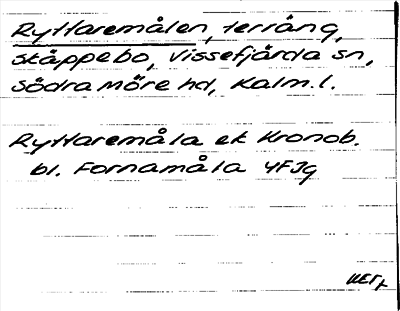 Ryttaremålen, terräng,
Skäppebo, Vissefjärda sn,
Södra Möre hd, Kalm.l.
Ryttaremåla ek Kronob.
bl. Fornamåla 4F3g